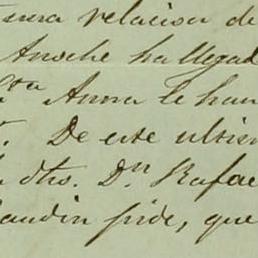 una relacion de
Anoche ha llegad
Sta Anna le han
De este ultim
dhos. Dn Rafae
audin pide, que